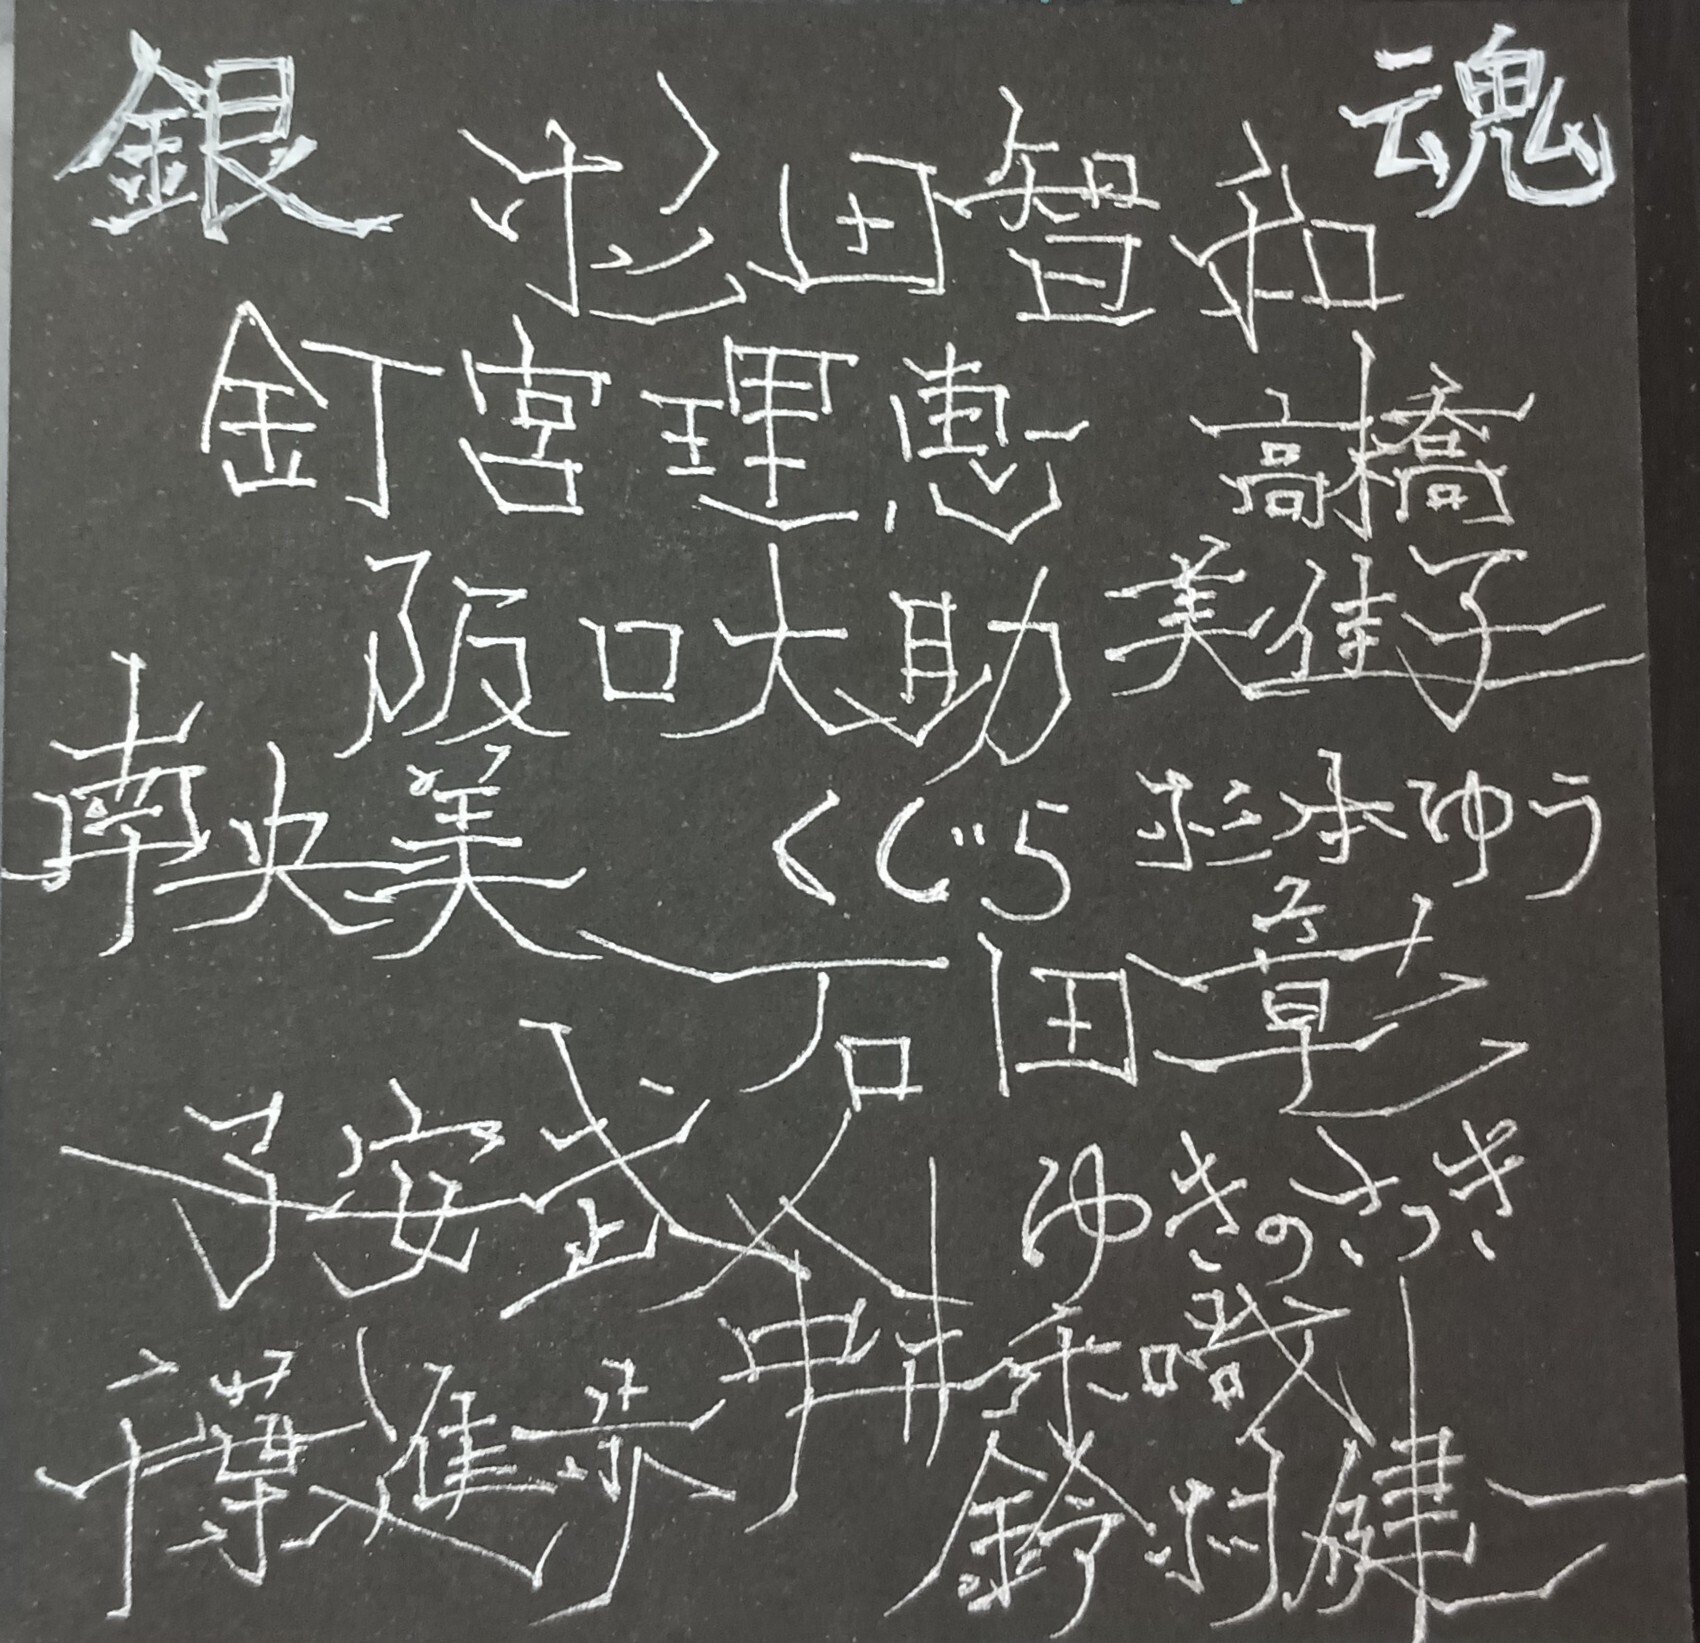 銀 魂
杉田智和
釘宮理恵 高橋
美佳子
阪口大助
南央美 くじら 杉本ゆう
石田彰
子安武人 ゆきのさつき
中井和哉
千葉進歩 鈴村健一